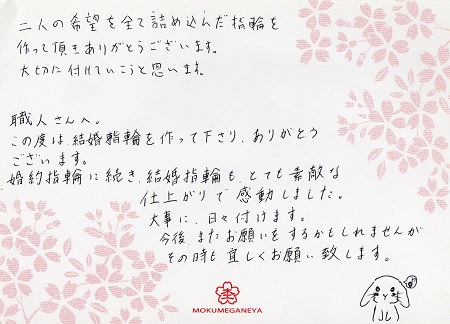 二人の希望を全て詰め込んだ指輪を
作って頂きありがとうございます。
大切に付けていこうと思います。
職人さんへ。
この度は、結婚指輪を作って下さり、ありがとう
ございます。
婚約指輪に続き、結婚指輪も、とても素敵な
仕上がりで感動しました。
大事に、日々付けます。
今後またお願いをするかもしれませんが
その時も宜しくお願い致します。
MOKUMEGANEYA